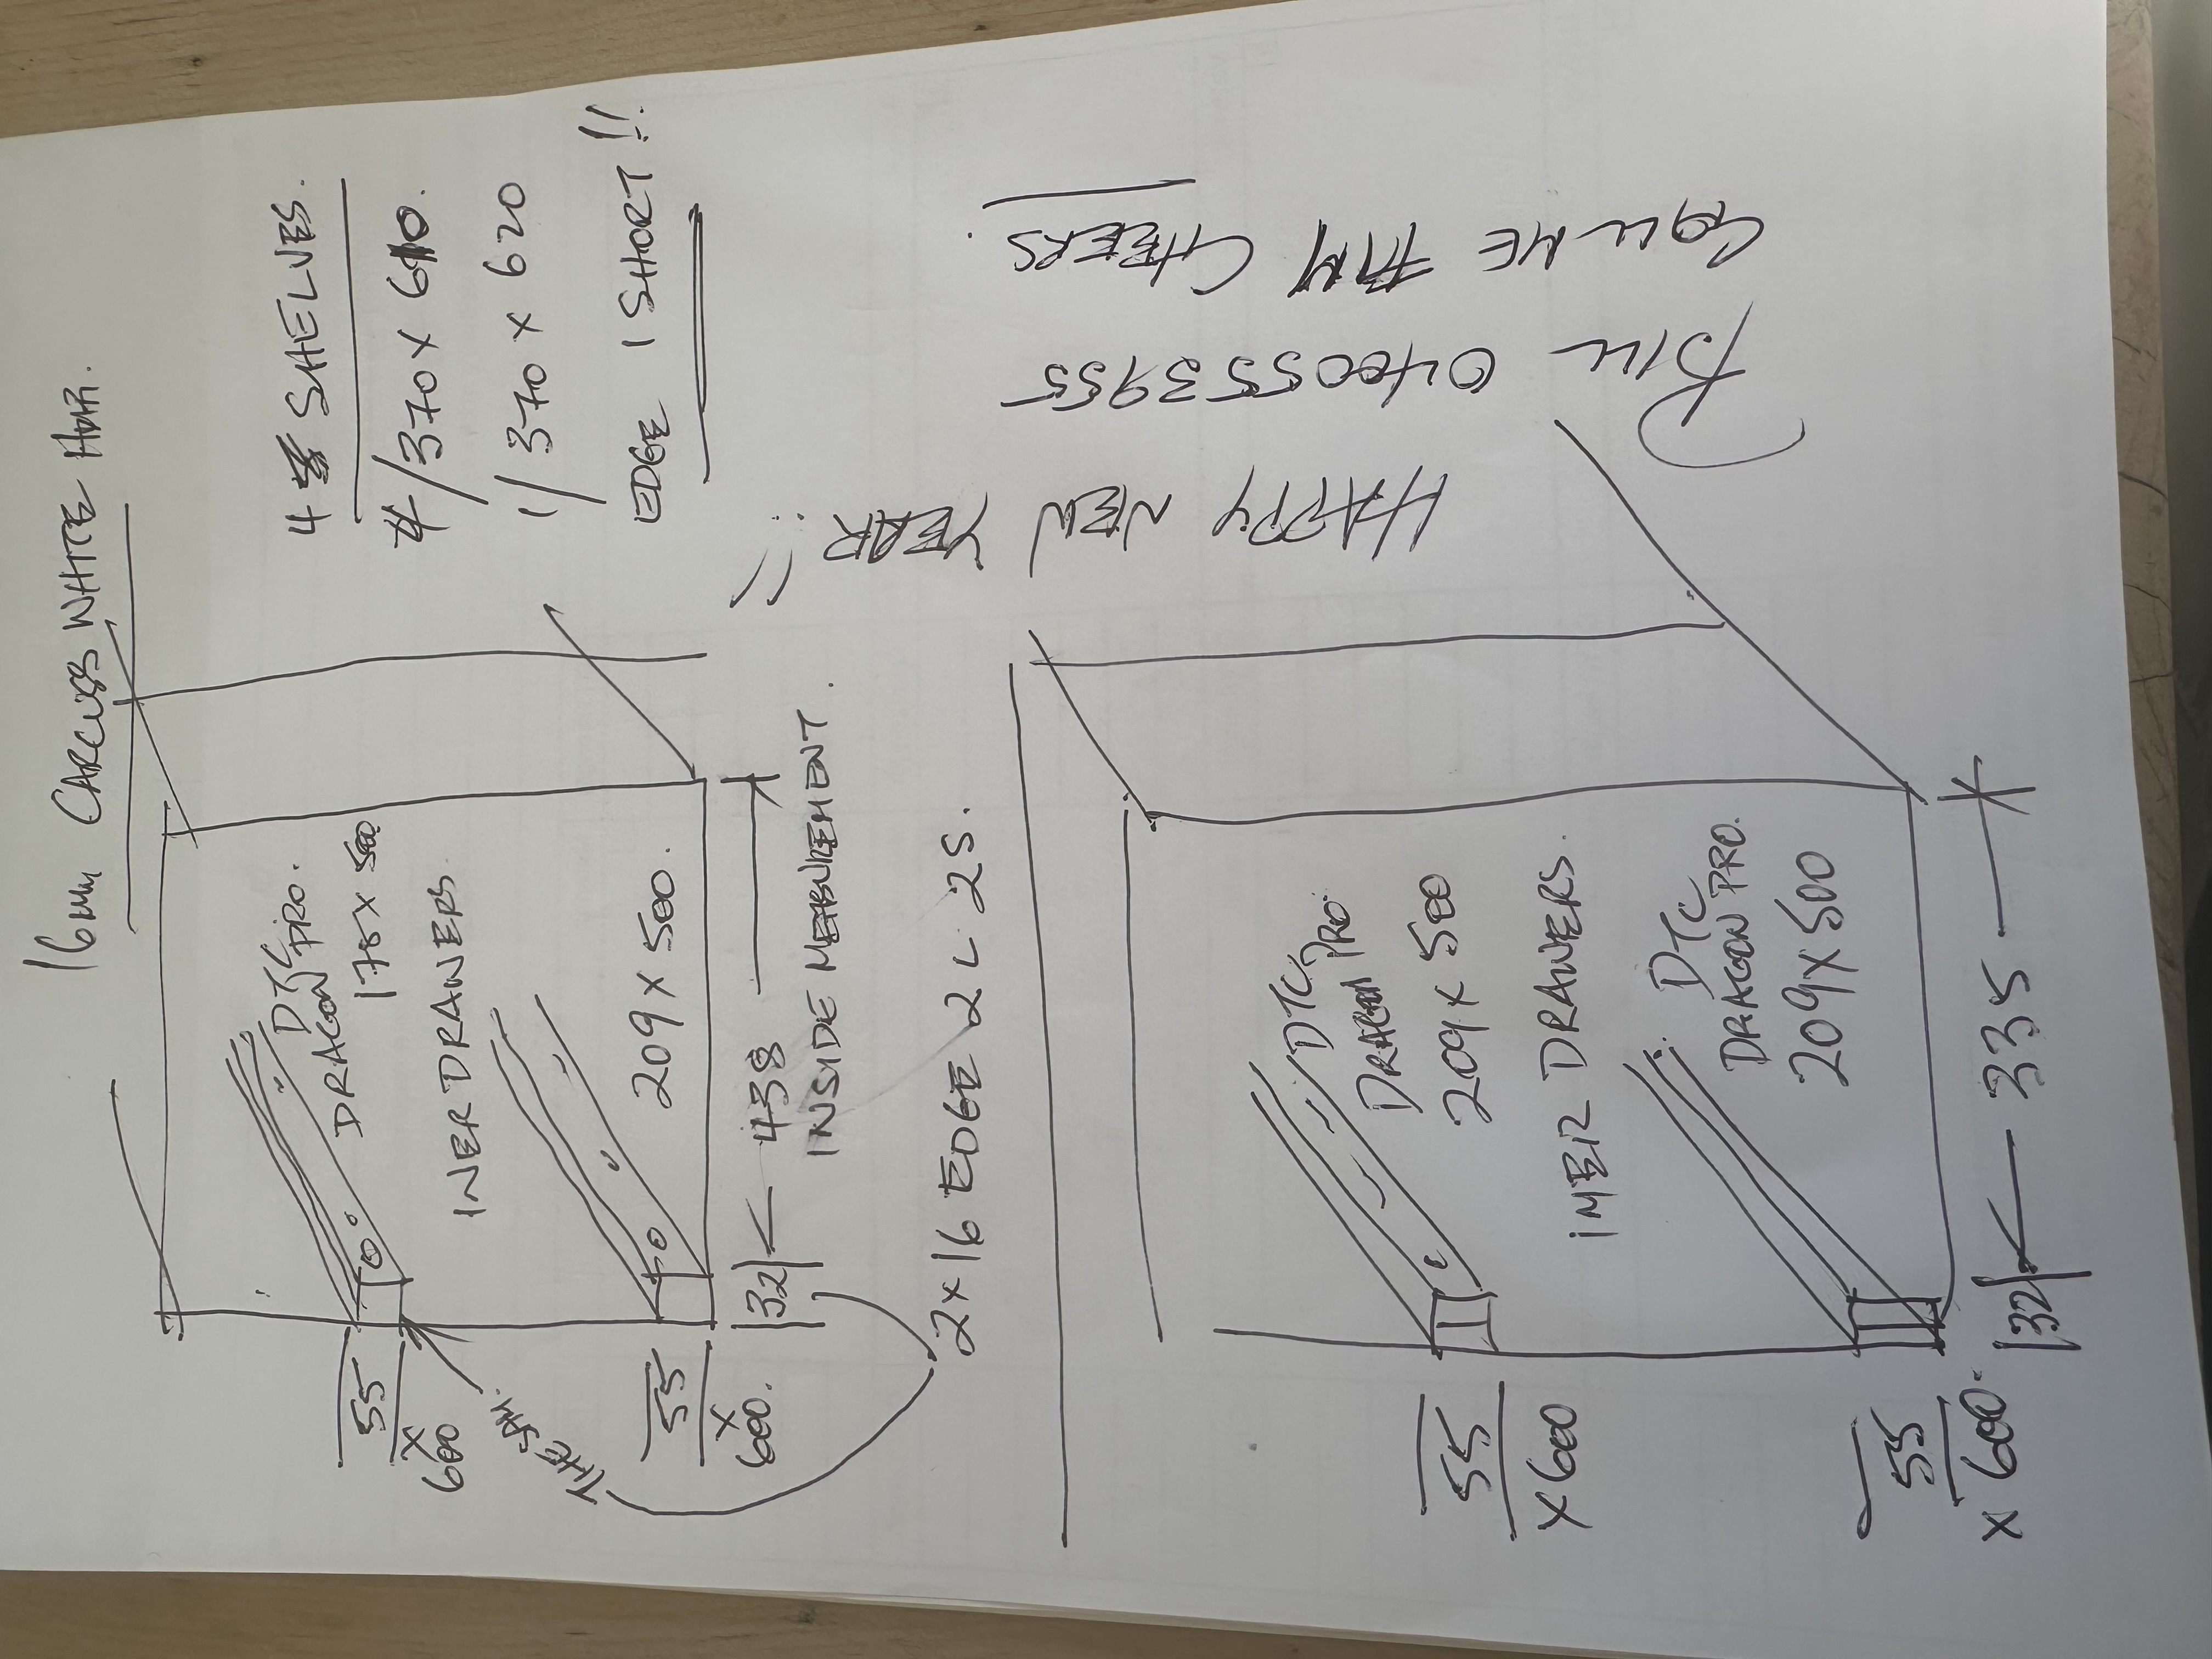 16mm CARCUSS WHITE HMR.
4 SHELVES.
4/370 x 610.
1/370 x 620
EDGE 1 SHORT!!
DTC
DRAGON PRO.
175 x 500
INER DRAWERS
209 x 500.
55
x
600
55
x
600.
32
438
INSIDE MEASUREMENT.
2x16 EDGE 2L 2S.
HAPPY NEW
YEAR
BILL 0400553955
CALL ME
CHEERS.
DTC
DRAGON PRO
209 x 500
INER DRAWERS.
DTC
DRAGON PRO.
209 x 500
55
x 600
55
x 600.
32
335